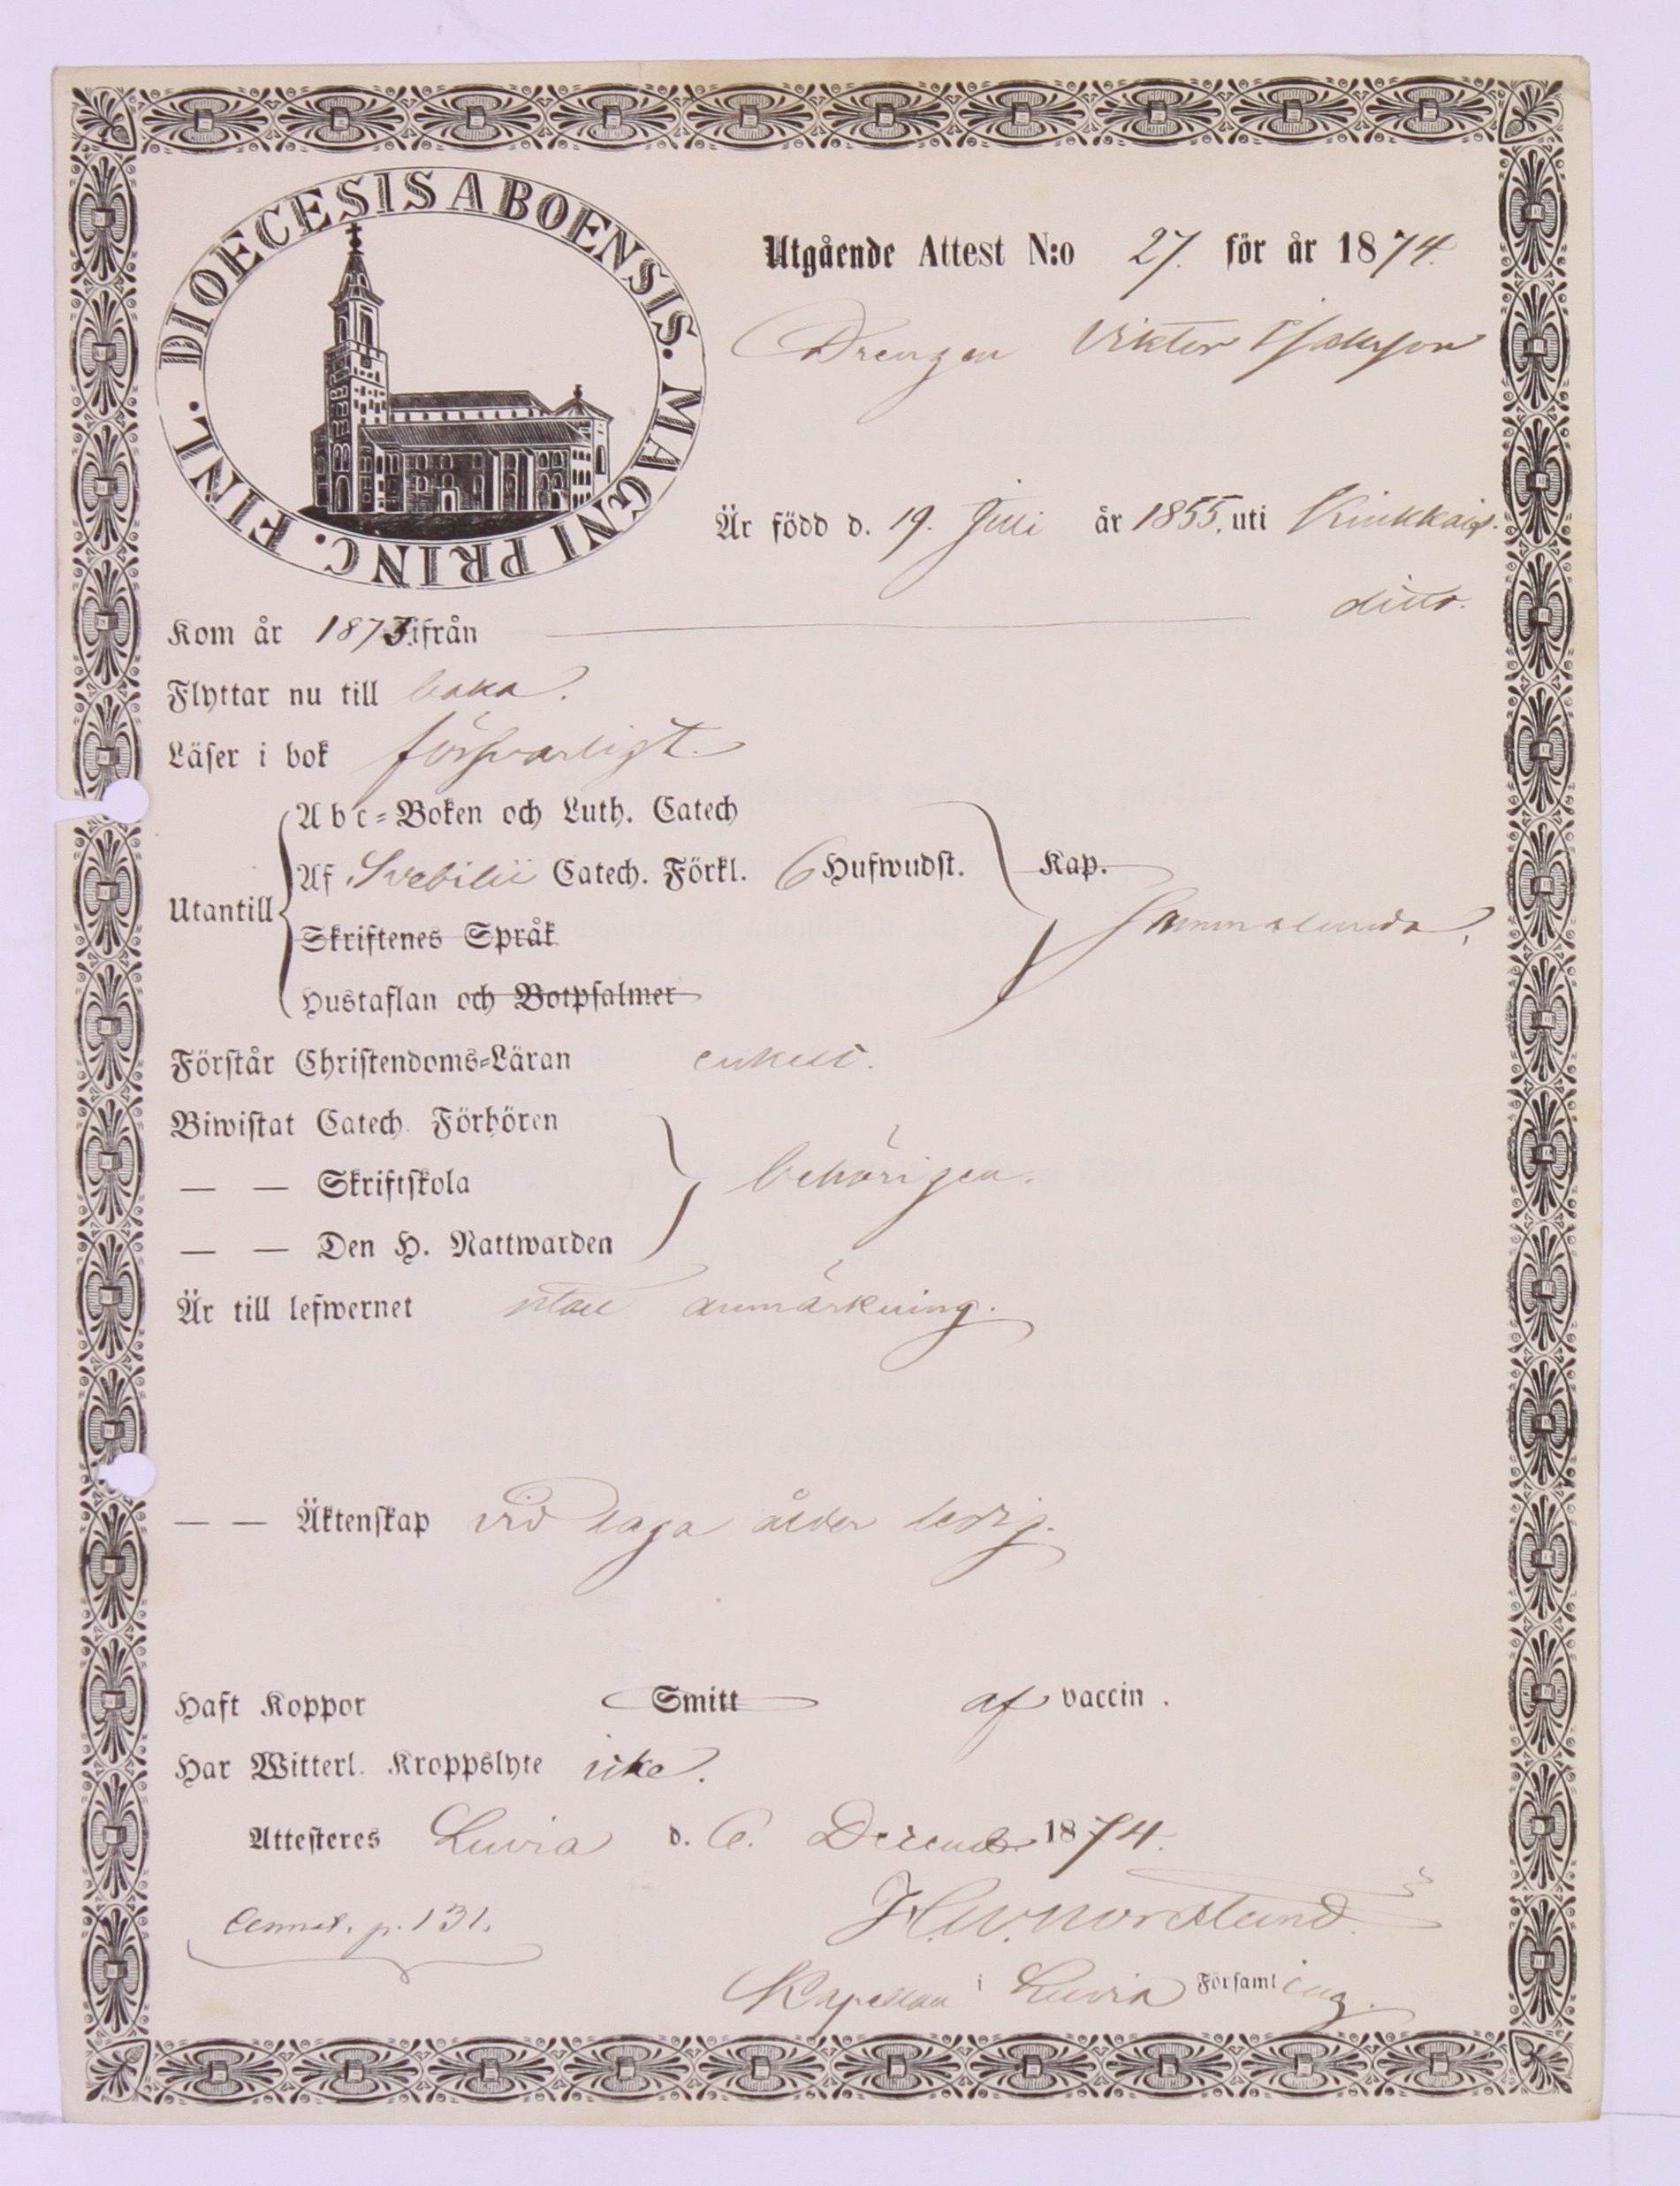 DIOECESIS ABOENSIS. MAGNI PRINC. FINL.
Utgående Attest N:o 27. för år 1874.
Drengen Viktor Isaksson
Är född d. 19. Juli år 1855. uti Kiukkais.
Kom år 1873. ifrån ditto.
Flyttar nu till baka.
Läser i bok försvarligt.
Abc-Boken och Luth. Catech
Utantill Af Svebilii Catech. Förkl. 6 Hufwudst. Kap.
Skriftenes Språk
Sammalunda.
Hustaflan och Botpsalmer
Förstår Christendoms-Läran enkelt.
Biwistat Catech. Förhören
— — Skriftskola behörigen.
— — Den H. Nattwarden
Är till lefwernet utan anmärkning.
— — Äktenskap vid laga ålder ledig.
Haft Koppor Smitt af vaccin.
Har Witterl. Kroppslyte icke.
Attesteres Luvia d. 6. Decemb. 1874.
H.W. Nordlund.
p. 131.
Kapellan i Luvia Församling.